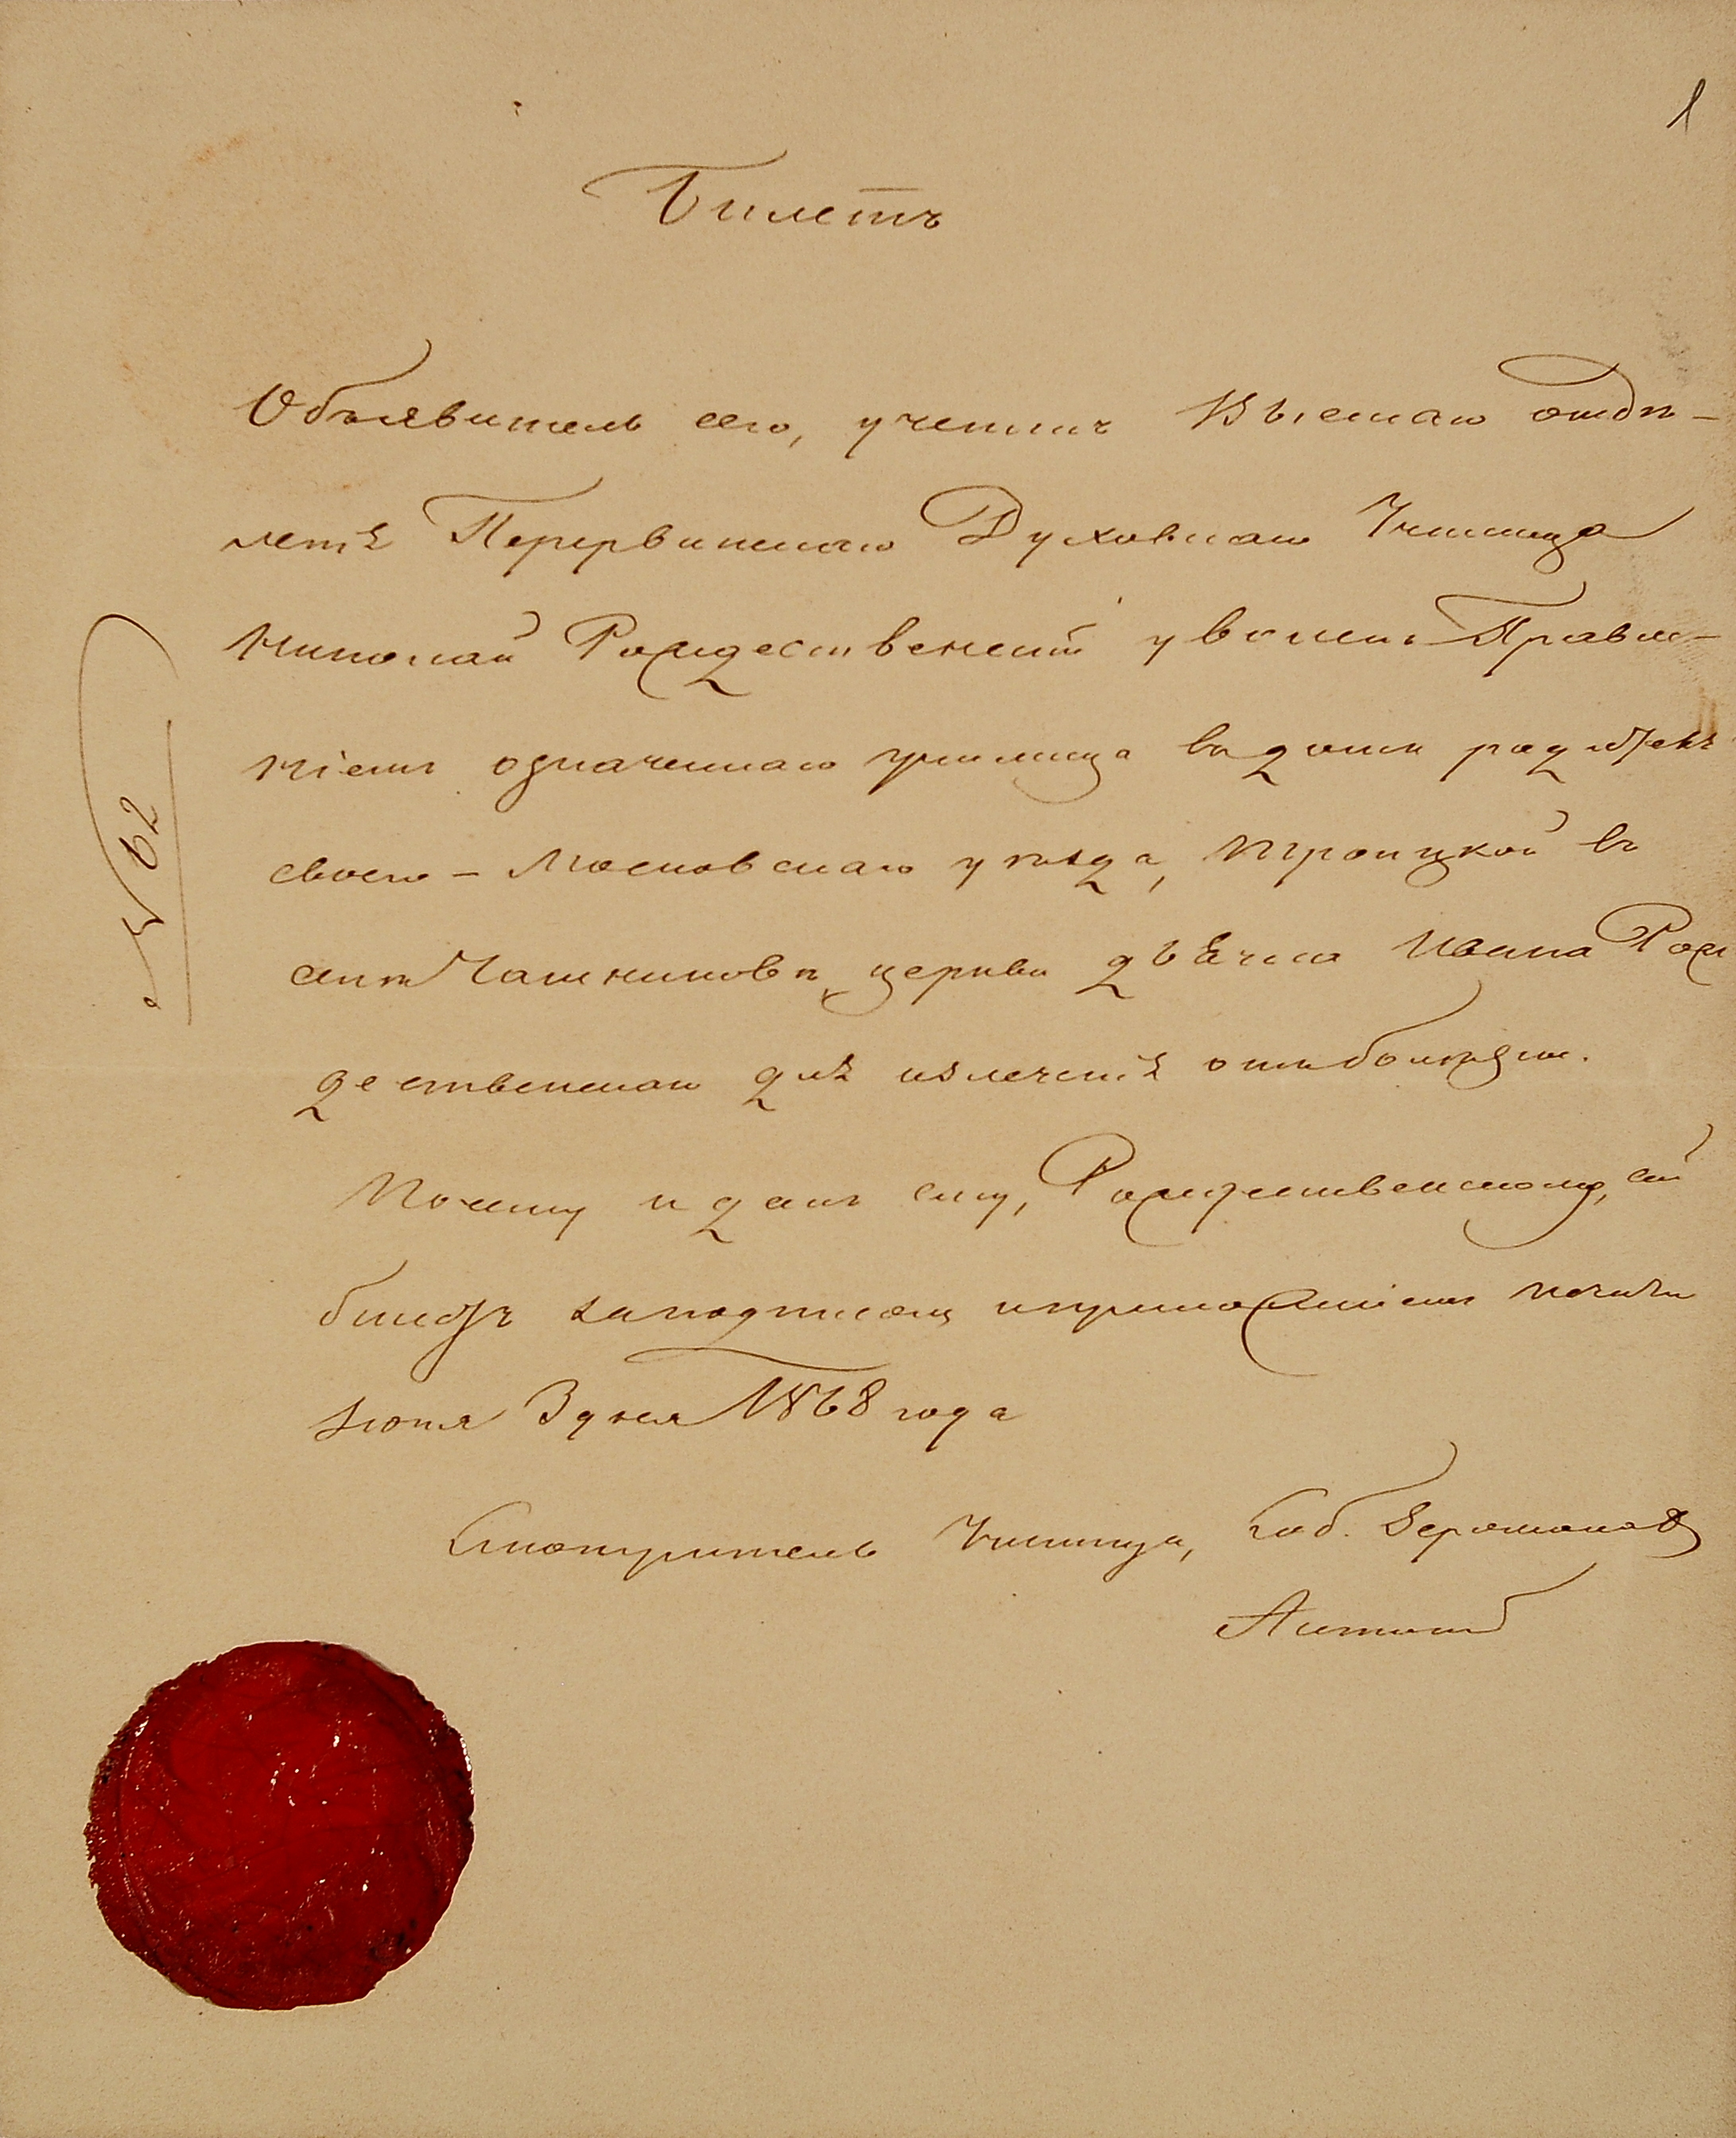 1
Билетъ
Объявитель сего, ученикъ Высшаго отдѣ-
ленія Перервинскаго Духовнаго Училища
Николай Рождественскій уволенъ Правле-
ніемъ означеннаго училища въ домъ родителя
своего – Московскаго уѣзда, Троицкой въ
селѣ Чашниковѣ, церкви дьячка Ивана Рож
дественскаго для излеченія отъ болѣзни.
Почему и данъ ему, Рождественскому, сей
билетъ за подписомъ и приложеніемъ печати
Іюня 3 дня 1868 года
Смотритель Училища, Соб. Іеромонахъ
№ 62